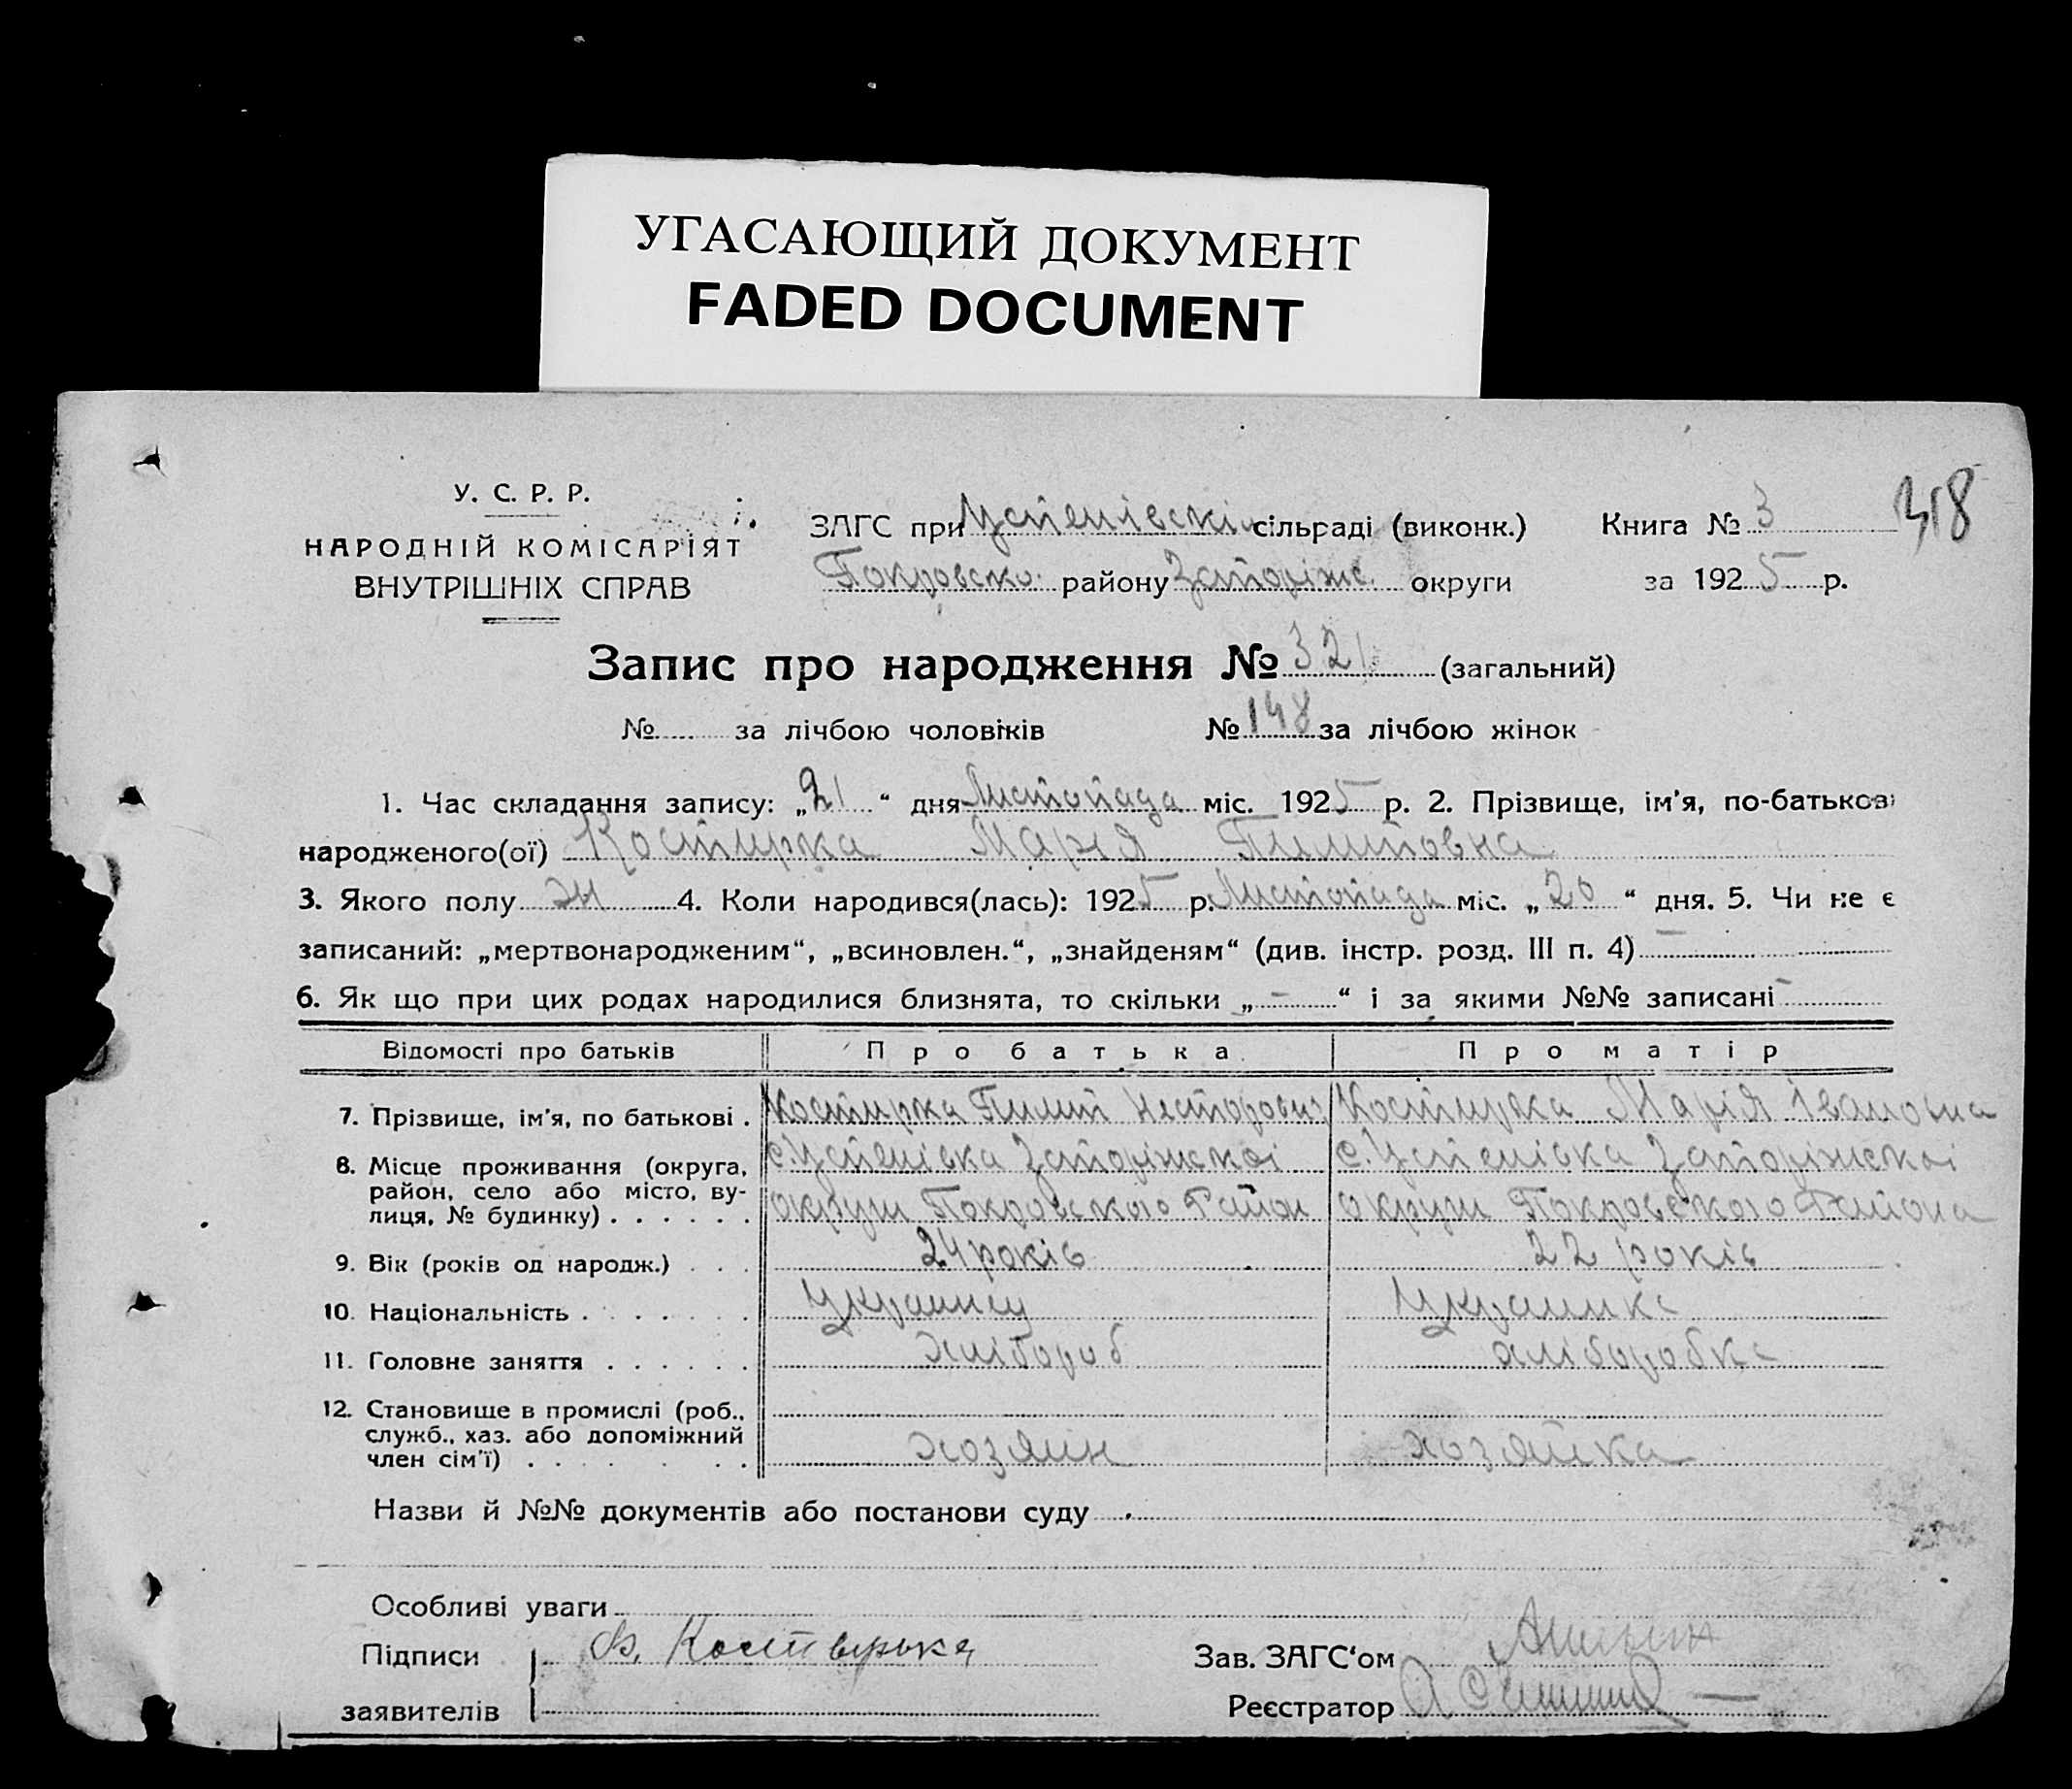 УГАСАЮЩИЙ ДОКУМЕНТ
FADED DOCUMENT
318
У. С. Р. Р.
НАРОДНІЙ КОМІСАРІЯТ
ВНУТРІШНІХ СПРАВ
ЗАГС при Успенівскі сільраді (виконк.) Книга № 3
Покровско району Запоріжс. округи за 1925 р.
Запис про народження № 321 (загальний)
№ за лічбою чоловіків № 148 за лічбою жінок
1. Час складання запису: „21“ дня Листопада міс. 1925 р. 2. Прізвище, ім'я, по-батькові
народженого(ої) Костирка Марія Пилиповна
3. Якого полу ж 4. Коли народився(лась): 1925 р. Листопада міс. „20“ дня. 5. Чи не є
записаний: „мертвонародженим“, „всиновлен.“, „знайденям“ (див. інстр. розд. III п. 4) –
6. Як що при цих родах народилися близнята, то скільки „ – “ і за якими №№ записані –
Відомості про батьків Про батька Про матір
7. Прізвище, ім'я, по батькові . Костирка Пилип Несторович Костирка Марія Івановна
8. Місце проживання (округа, с. Успенівка Запоріжскоі с. Успенівка Запоріжскоі
район, село або місто, ву-
лиця, № будинку) . . . . . . округи Покровского Район округи Покровского Района
9. Вік (років од народж.) . . . 24 років 22 років
10. Національність . . . . . . . Украинец Украинка
11. Головне заняття . . . . . . хлібороб хліборобка
12. Становище в промислі (роб.,
служб., хаз. або допоміжний
член сім'ї) . . . . . . хозяин хозяйка
Назви й №№ документів або постанови суду
Особливі уваги
Підписи Костырька Зав. ЗАГС'ом
заявителів Реєстратор